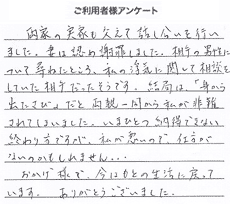 ご利用者様アンケート
両家の実家も交えて話し合いを行い
ました。妻は認め謝罪しました。相手の男性に
ついて尋ねたところ、私の浮気に関して相談を
していた相手だったそうです。結局は、「身から
出たさび」だと両親一同から私が非難
されてしまいました。いまひとつ納得できない
終わり方ですが、私が悪いので、仕方が
ないのかもしれません・・・
おかげ様で、今はもとの生活に戻って
います。ありがとうございました。